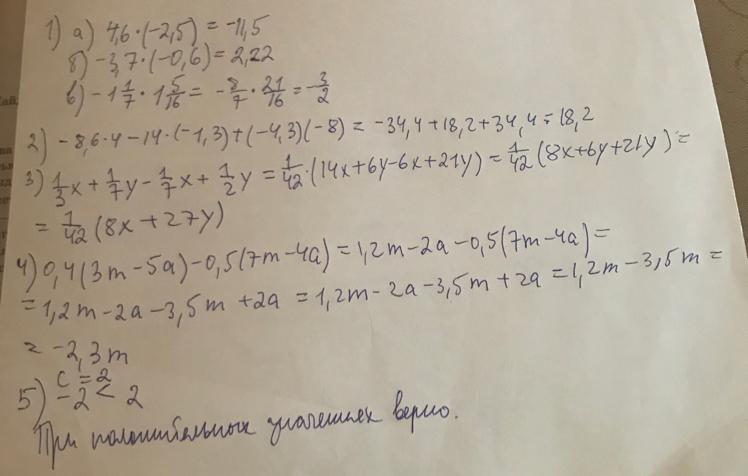 1) а) 4,6·(-2,5) = -11,5
б) -3,7·(-0,6) = 2,22
в) -1 1/7 · 1 5/16 = -8/7 · 21/16 = -3/2
2) -8,6·4-14·(-1,3)+(-4,3)(-8) = -34,4+18,2+34,4 = 18,2
3) 1/3x + 1/7y - 1/7x + 1/2y = 1/42·(14x+6y-6x+21y) = 1/42(8x+6y+21y) =
= 1/42(8x+27y)
4) 0,4(3m-5a)-0,5(7m-4a) = 1,2m-2a-0,5(7m-4a) =
= 1,2m-2a-3,5m+2a = 1,2m-2a-3,5m+2a = 1,2m-3,5m =
= -2,3m
5) c = 2
-2 < 2
При положительных значениях верно.